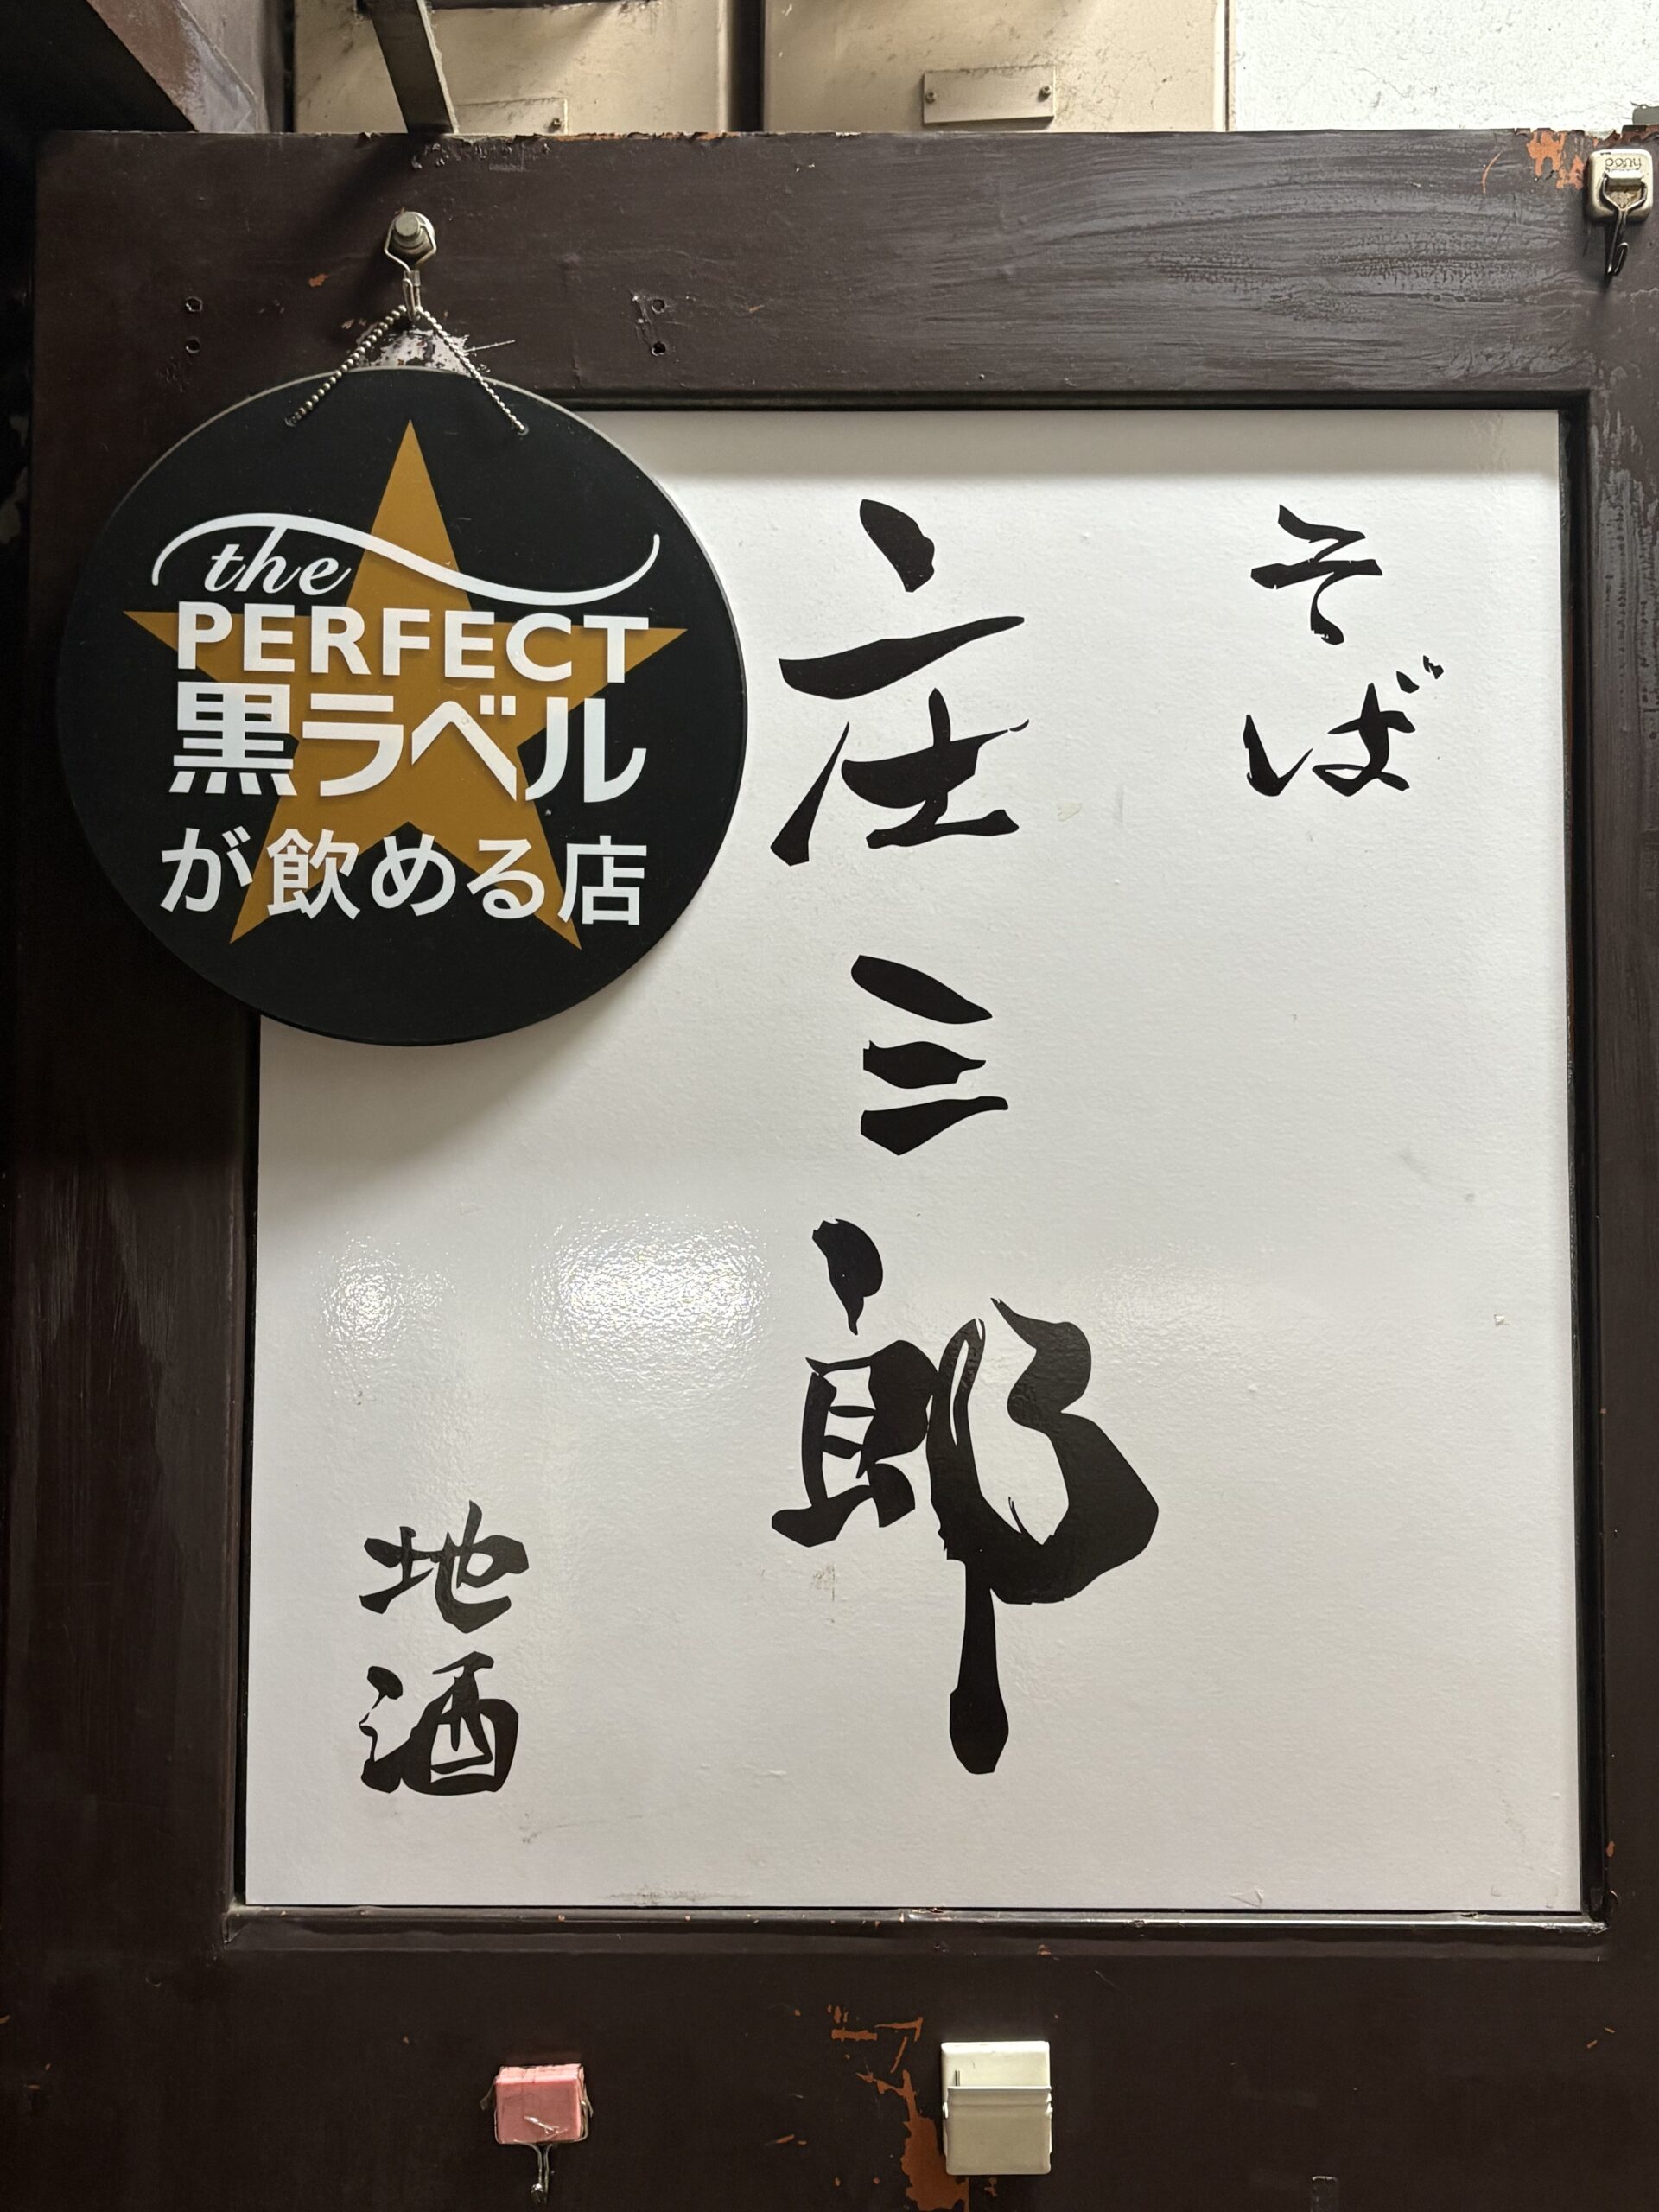 the
PERFECT
黒ラベル
が飲める店
そば
庄三郎
地酒